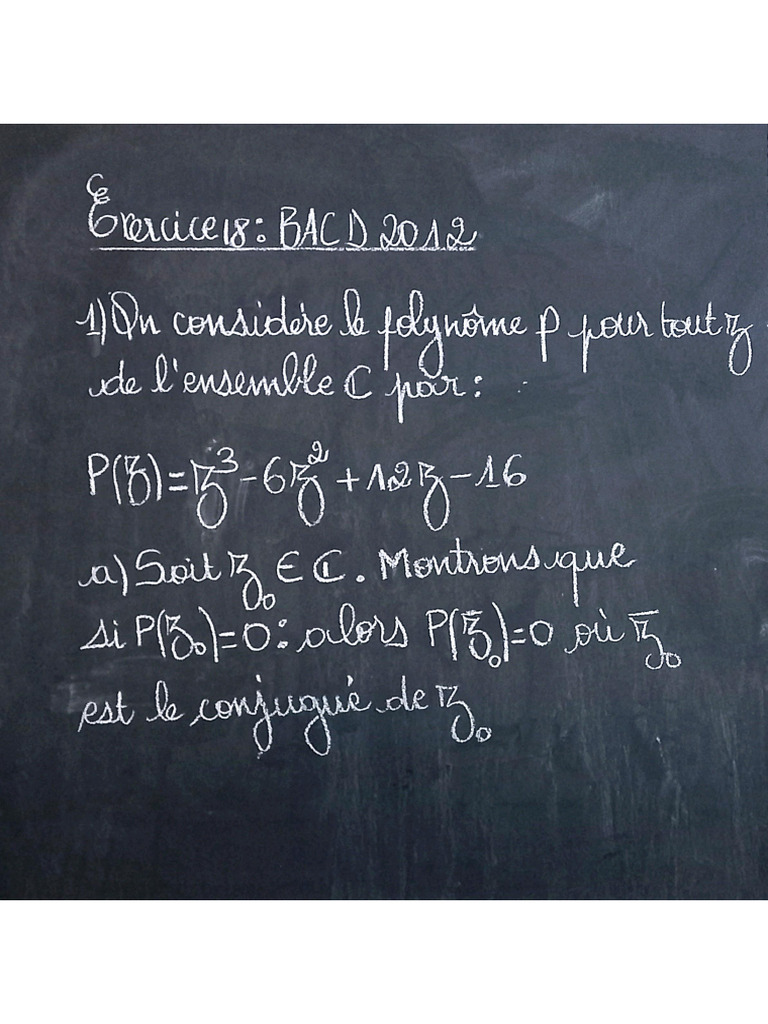 Exercice 18: BAC D 2012
1) On considère le polynôme P pour tout z
de l'ensemble C par:
P(z) = z³ - 6z² + 12z - 16
a) Soit z₀ ∈ ℂ. Montrons que
si P(z₀) = 0: alors P(z̄₀) = 0 où z̄₀
est le conjugué de z₀